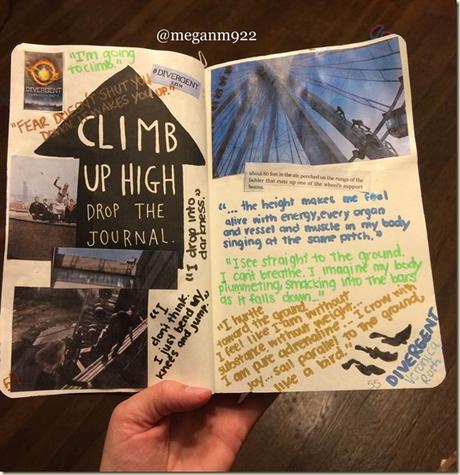 @meganm922
"I'm going
to climb."
DIVERGENT
"FEAR DOESN'T SHUT YOU
DOWN IT WAKES YOU UP."
#DIVERGENT
CLIMB
UP HIGH
DROP THE
JOURNAL.
"I drop into
darkness."
"I
don't think.
I just bend my
knees and jump."
about 80 feet in the air, perched on the rungs of the
ladder that runs up one of the wheel's support
beams.
"... the height makes me feel
alive with energy, every organ
and vessel and muscle in my body
singing at the same pitch."
"I see straight to the ground.
I can't breathe. I imagine my body
plummeting, smacking into the bars
as it falls down..."
"I hurtle
toward the ground.
I feel like I am without
substance without weight...
I am pure adrenaline... I crow with
joy... sail parallel to the ground,
like a bird."
DIVERGENT
Veronica
Roth
55